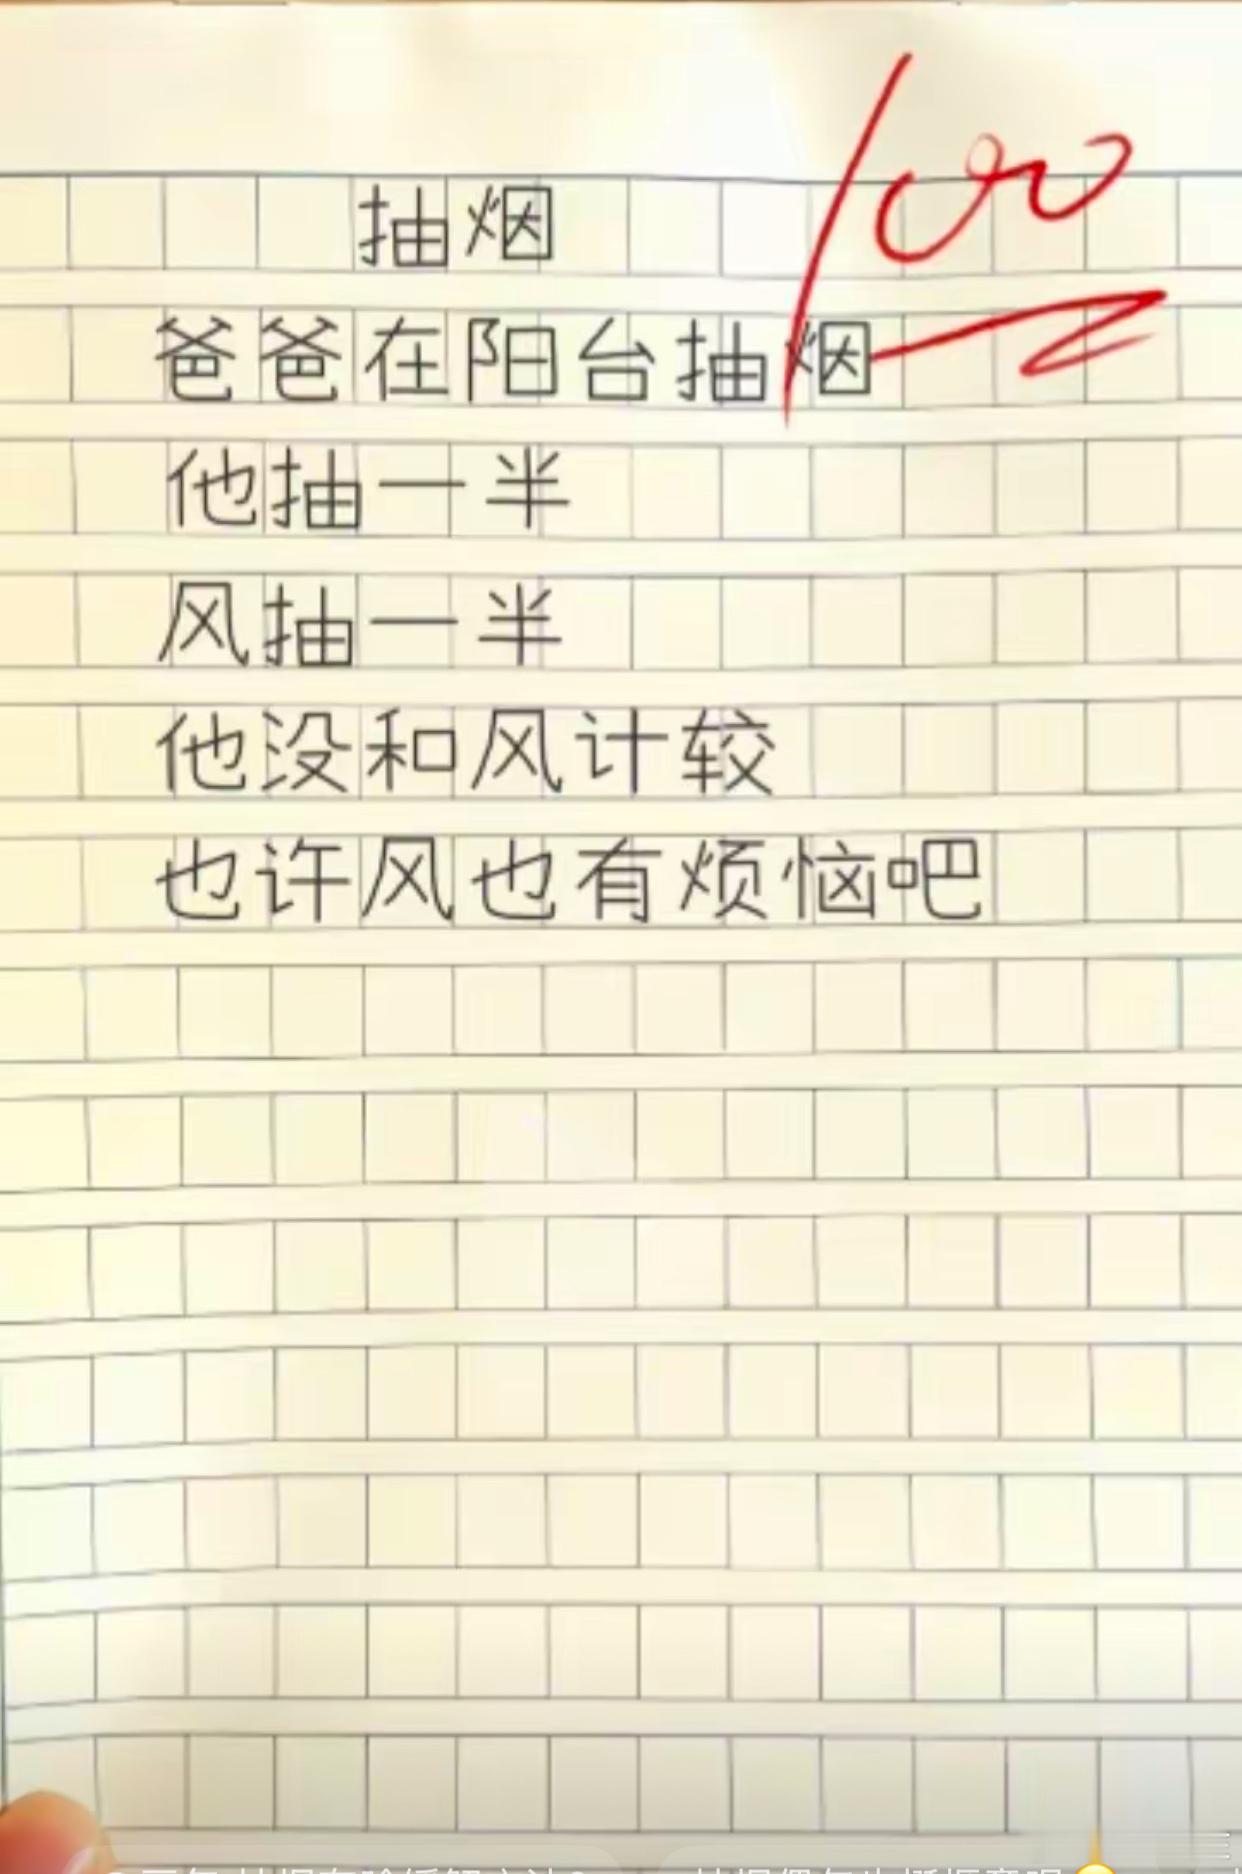 100
抽烟
爸爸在阳台抽烟
他抽一半
风抽一半
他没和风计较
也许风也有烦恼吧